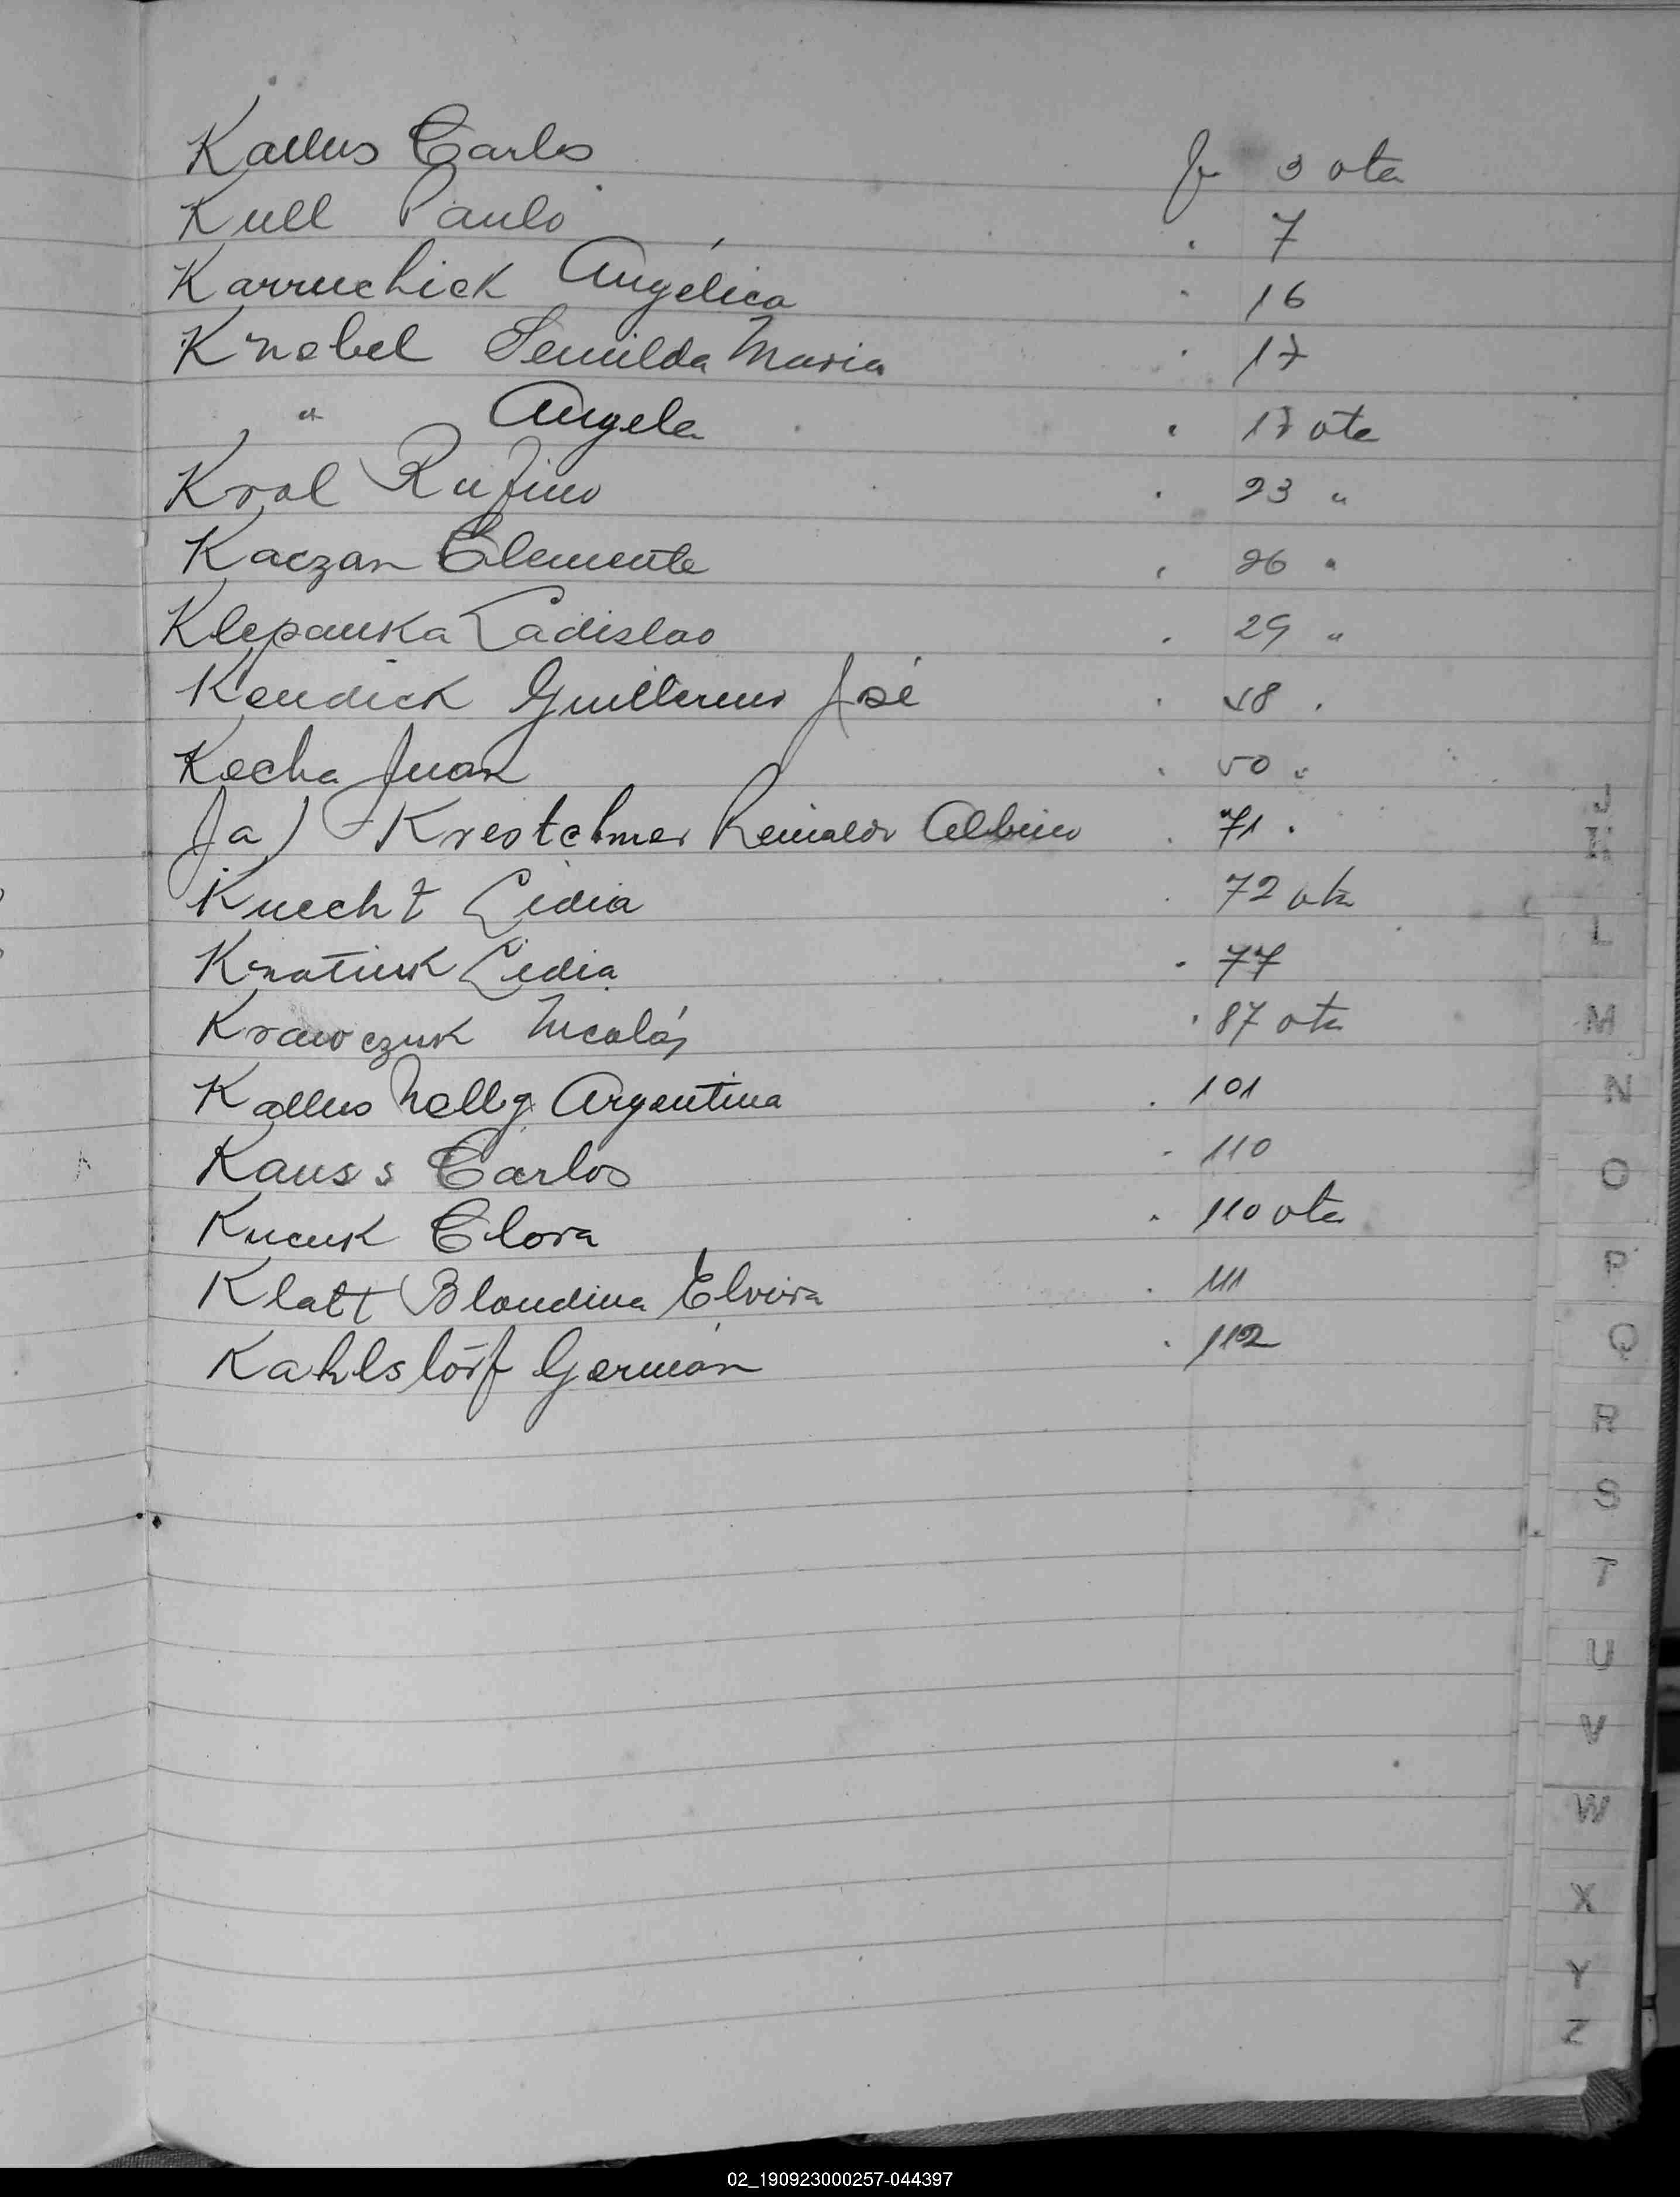 Kallus Carlos fº 3 vta
Kull Paulo " 7
Karruchick Angélica " 16
Knebel Semilda Maria " 17
" Angela " 17 vta
Krol Rufino " 23 "
Kaczan Clemente " 26 "
Klepanka Ladislao " 29 "
Kendick Guillermo José " 48 "
Kocha Juan " 50 "
(a) Krestchmer Reinaldo Albino " 71 "
Knecht Lidia " 72 vta
Knatiuk Lidia " 77
Krawczuk Nicolás " 87 vta
Kallus Nelly Argentina " 101
Kauss Carlos " 110
Kucuk Clora " 110 vta
Klatt Blandina Elvira " 111
Kahlstörf Germán " 112
J
K
L
M
N
O
P
Q
R
S
T
U
V
W
X
Y
Z
02_190923000257-044397